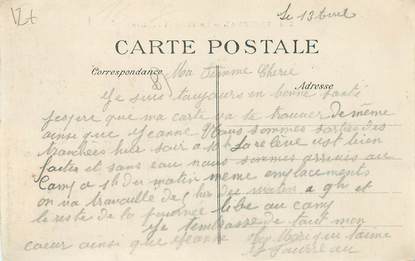 le 13 Avril
CARTE POSTALE
Correspondance
Adresse
Ma Femme Cherie
Je suis toujours en bonne santé
j'espere que ma carte va te trouver de même
ainsi que Jeanne Nous sommes sorties des
tranchées hier soir a 10h La relève est bien
faites et sans eau nous sommes arrivés au
Camp a 1h du matin même emplacements
on va travaille de 5 hur du matin a 9h et
le reste de la journee libe au camp
Je t'embrasse de tout mon
coeur ainsi que Jeanne qui t'aime